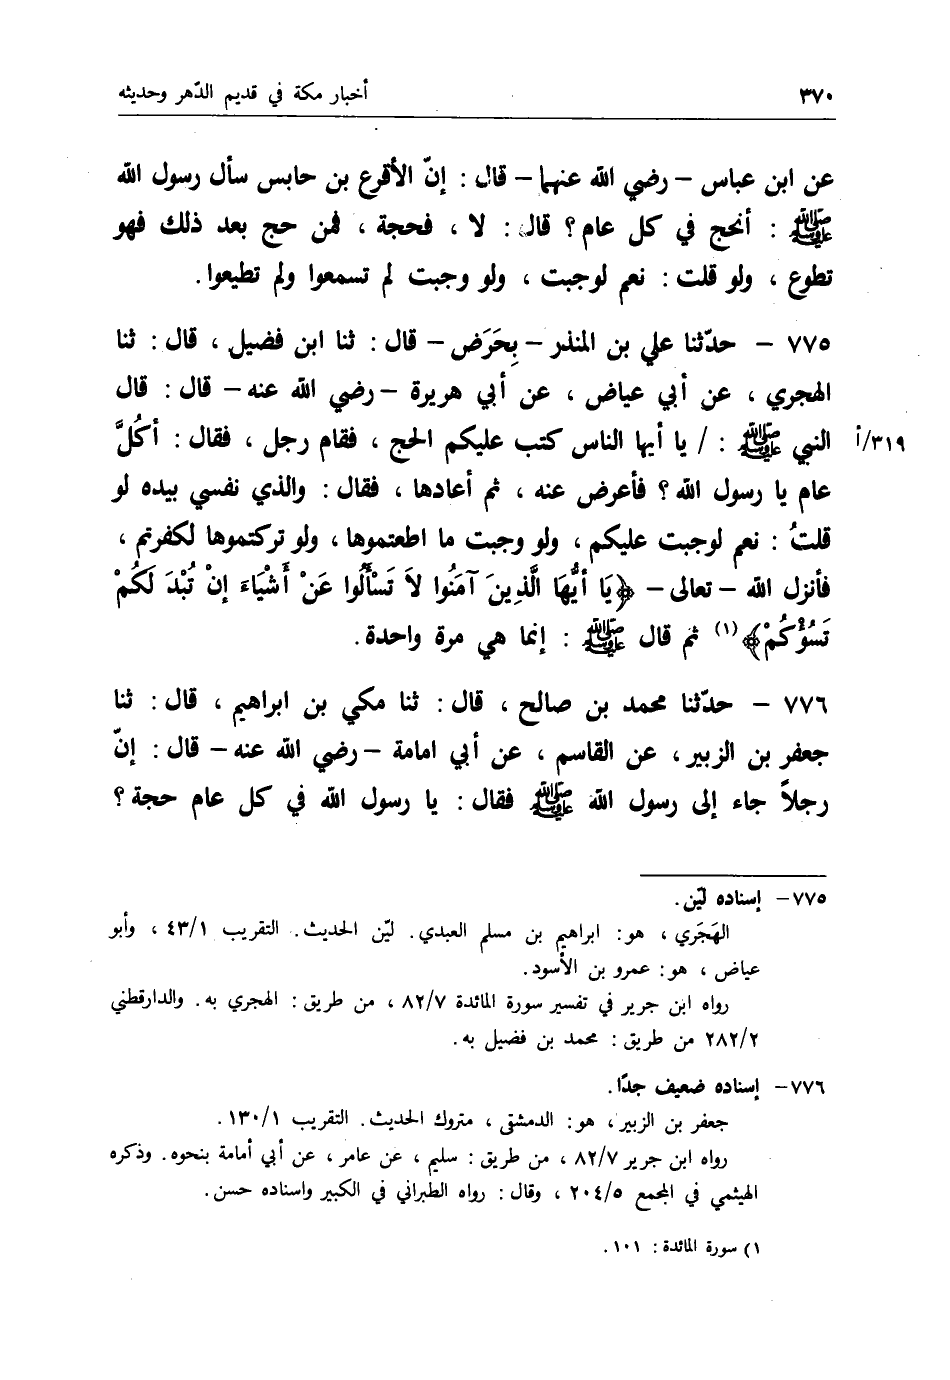 ٣٧٠ أخبار مكة في قديم الدّهر وحديثه
عن ابن عباس – رضي الله عنهما – قال : إنّ الأقرع بن حابس سأل رسول الله
ﷺ : أنحج في كل عام؟ قال : لا ، فحجة ، فمن حج بعد ذلك فهو
تطوع ، ولو قلت : نعم لوجبت ، ولو وجبت لم تسمعوا ولم تطيعوا .
٧٧٥ – حدّثنا علي بن المنذر – بِحَرَض – قال : ثنا ابن فضيل ، قال : ثنا
الهجري ، عن أبي عياض ، عن أبي هريرة – رضي الله عنه – قال : قال
النبي ﷺ : / يا أيها الناس كتب عليكم الحج ، فقام رجل ، فقال : أكُلَّ ٣١٩/أ
عام يا رسول الله ؟ فأعرض عنه ، ثم أعادها ، فقال : والذي نفسي بيده لو
قلتُ : نعم لوجبت عليكم ، ولو وجبت ما اطعتموها ، ولو تركتموها لكفرتم ،
فأنزل الله – تعالى – ﴿يَا أَيُّهَا الَّذِينَ آمَنُوا لاَ تَسْأَلُوا عَنْ أَشْيَاءَ إِنْ تُبْدَ لَكُمْ
تَسُؤْكُمْ﴾(١) ثم قال ﷺ : إنما هي مرة واحدة .
٧٧٦ – حدّثنا محمد بن صالح ، قال : ثنا مكي بن ابراهيم ، قال : ثنا
جعفر بن الزبير ، عن القاسم ، عن أبي امامة – رضي الله عنه – قال : إنّ
رجلاً جاء إلى رسول الله ﷺ فقال : يا رسول الله في كل عام حجة ؟
٧٧٥ – إسناده ليّن .
الهَجَري ، هو : ابراهيم بن مسلم العبدي . ليّن الحديث . التقريب ٤٣/١ ، وأبو
عياض ، هو : عمرو بن الأسود .
رواه ابن جرير في تفسير سورة المائدة ٨٢/٧ ، من طريق : الهجري به . والدارقطني
٢٨٢/٢ من طريق : محمد بن فضيل به .
٧٧٦ – إسناده ضعيف جدًا .
جعفر بن الزبير ، هو : الدمشقي ، متروك الحديث . التقريب ١٣٠/١ .
رواه ابن جرير ٨٢/٧ ، من طريق : سليم ، عن عامر ، عن أبي أمامة بنحوه . وذكره
الهيثمي في المجمع ٢٠٤/٥ ، وقال : رواه الطبراني في الكبير واسناده حسن .
١) سورة المائدة : ١٠١ .